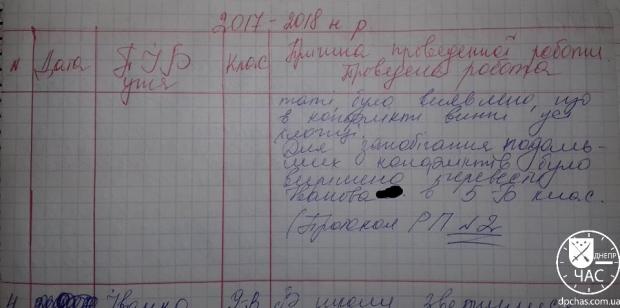 2017-2018 н р.
N Дата ПІБ учня Клас Причина проведенної роботи. Проведена робота
таті, було виявлено, що
в конфлікті винні усі
хлопці.
Для запобігання подаль-
ших конфліктів було
вирішено перевести
Іванова в 5 Б клас.
(Протокол РП №2
4 Іванко
В школи
ДНЕПР
ЧАС
dpchas.com.ua